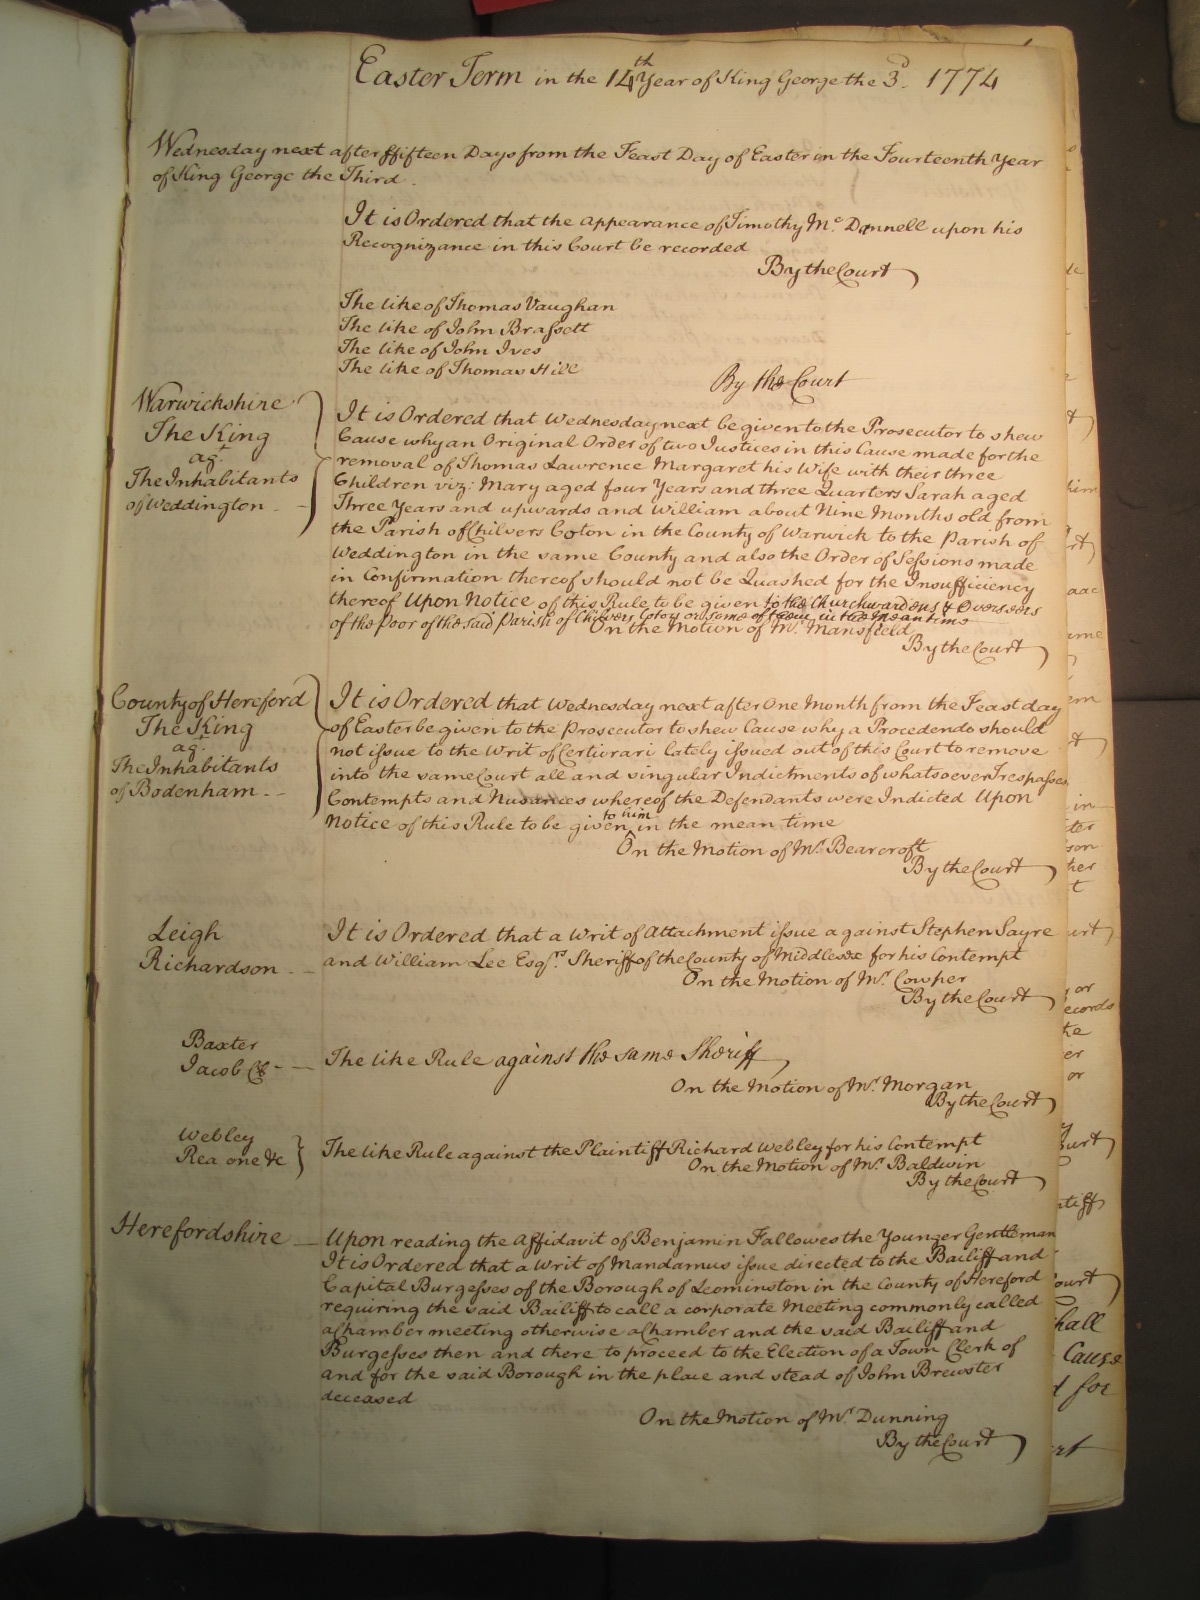 Easter Term in the 14th Year of King George the 3d. 1774
Wednesday next after ffifteen Days from the Feast Day of Easter in the Fourteenth Year
of King George the Third.
It is Ordered that the Appearance of Timothy Mc. Dannell upon his
Recognizance in this Court be recorded
By the Court
The like of Thomas Vaughan
The like of John Brassett
The like of John Ives
The like of Thomas Hill
By the Court
Warwickshire
The King
agt.
The Inhabitants
of Weddington
It is Ordered that Wednesday next be given to the Prosecutor to shew
Cause why an Original Order of two Justices in this Cause made for the
removal of Thomas Lawrence Margaret his Wife with their three
Children viz: Mary aged four Years and three Quarters Sarah aged
Three Years and upwards and William about Nine Months old from
the Parish of Chilvers Coton in the County of Warwick to the Parish of
Weddington in the same County and also the Order of Sessions made
in Confirmation thereof should not be Quashed for the Insufficiency
thereof Upon Notice of this Rule to be given to the Churchwardens & Overseers
of the Poor of the said Parish of Chilvers Coton or some of them in the Mean time
On the Motion of Mr. Mansfield
By the Court
County of Hereford
The King
agt.
The Inhabitants
of Bodenham
It is Ordered that Wednesday next after One Month from the Feast day
of Easter be given to the Prosecutor to shew Cause why a Procedendo should
not issue to the Writ of Certiorari lately issued out of this Court to remove
into the same Court all and singular Indictments of whatsoever Trespasses
Contempts and Nusances whereof the Defendants were Indicted Upon
Notice of this Rule to be given to him in the mean time
On the Motion of Mr. Bearcroft
By the Court
Leigh
Richardson
It is Ordered that a Writ of Attachment issue against Stephen Sayre
and William Lee Esqrs. Sheriff of the County of Middlesex for his Contempt
On the Motion of Mr. Cowper
By the Court
Baxter
Jacob &c
The like Rule against the same Sheriff
On the Motion of Mr. Morgan
By the Court
Webley
Rea one &c
The like Rule against the Plaintiff Richard Webley for his Contempt
On the Motion of Mr. Baldwin
By the Court
Herefordshire
Upon reading the Affidavit of Benjamin Fallowes the Younger Gentleman
It is Ordered that a Writ of Mandamus issue directed to the Bailiff and
Capital Burgesses of the Borough of Leominston in the County of Hereford
requiring the said Bailiff to call a corporate Meeting commonly called
a Chamber meeting otherwise a Chamber and the said Bailiff and
Burgesses then and there to proceed to the Election of a Town Clerk of
and for the said Borough in the place and stead of John Brewster
deceased
On the Motion of Mr. Dunning
By the Court